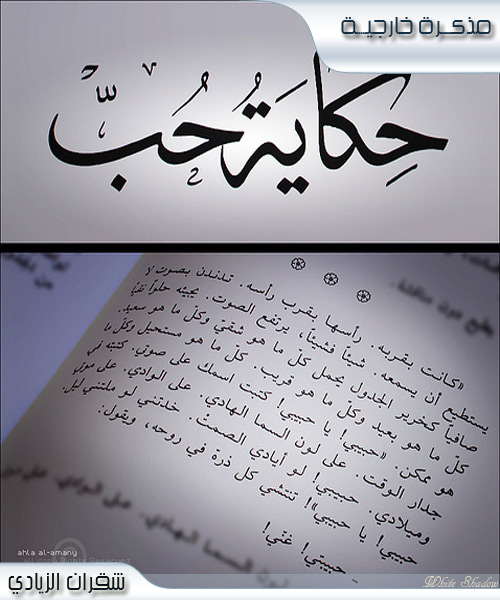 مذكـرة خارجيـة
حِكايَةُ حُبّ
«كانت بقربه. رأسها بقرب رأسه. تدندن بصوت لا
يستطيع أن يسمعه. شيئاً فشيئاً، يرتفع الصوت. يجيئه حلواً نقياً
صافياً كخرير الجدول يحمل كلّ ما هو شقيّ وكلّ ما هو سعيد.
كلّ ما هو بعيد وكل ما هو قريب. كل ما هو مستحيل وكلّ ما
هو ممكن. «حبيبي! يا حبيبي! كتبت اسمك على صوتي. كتبته في
جدار الوقت. على لون السما الهادي. على الوادي. على موتي
وميلادي. حبيبي! لو أيادي الصمت. خذتني لو ملتني ليل.
حبيبي! يا حبيبي»! تنتشي كل ذرة في روحه، ويقول:
ـ حبيبي! غنّي!
لون السما الهادي. على الوادي. على
ahla al-amany
All rights Reserved
White Shadow
شقران الزيادي